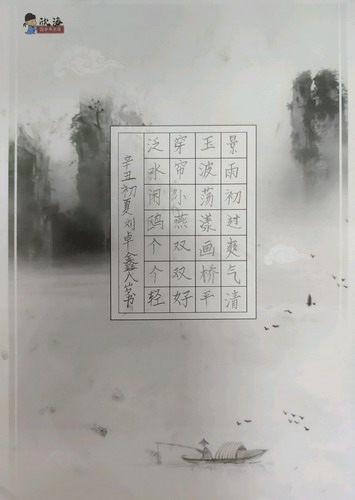 欣海
景雨初过爽气清
玉波荡漾画桥平
穿帘小燕双双好
泛水闲鸥个个轻
辛丑初夏刘卓鑫八岁书